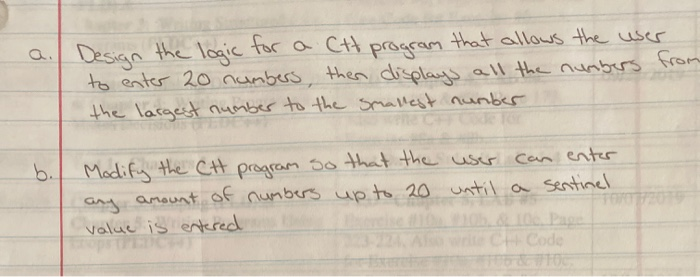 a. Design the logic for a C++ program that allows the user
to enter 20 numbers, then displays all the numbers from
the largest number to the smallest number
b. Modify the C++ program so that the user can enter
any amount of numbers up to 20 until a sentinel
value is entered